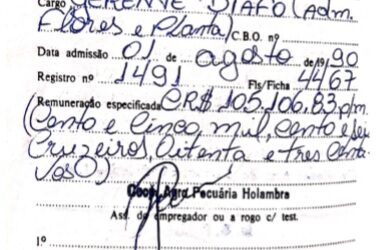 Cargo GERENTE DIAFO (Adm.
Flores e Planta) C.B.O. nº
Data admissão 01 de agosto de 1990
Registro nº 1491 Fls/Ficha 4467
Remuneração especificada CR$ 105.106,83 p/m
(Cento e Cinco, mil, Cento e seis
Cruzeiros, Oitenta e Tres Centa-
vos.)
Coop. Agro Pecuária Holambra
Ass. do empregador ou a rogo c/ test.
1º